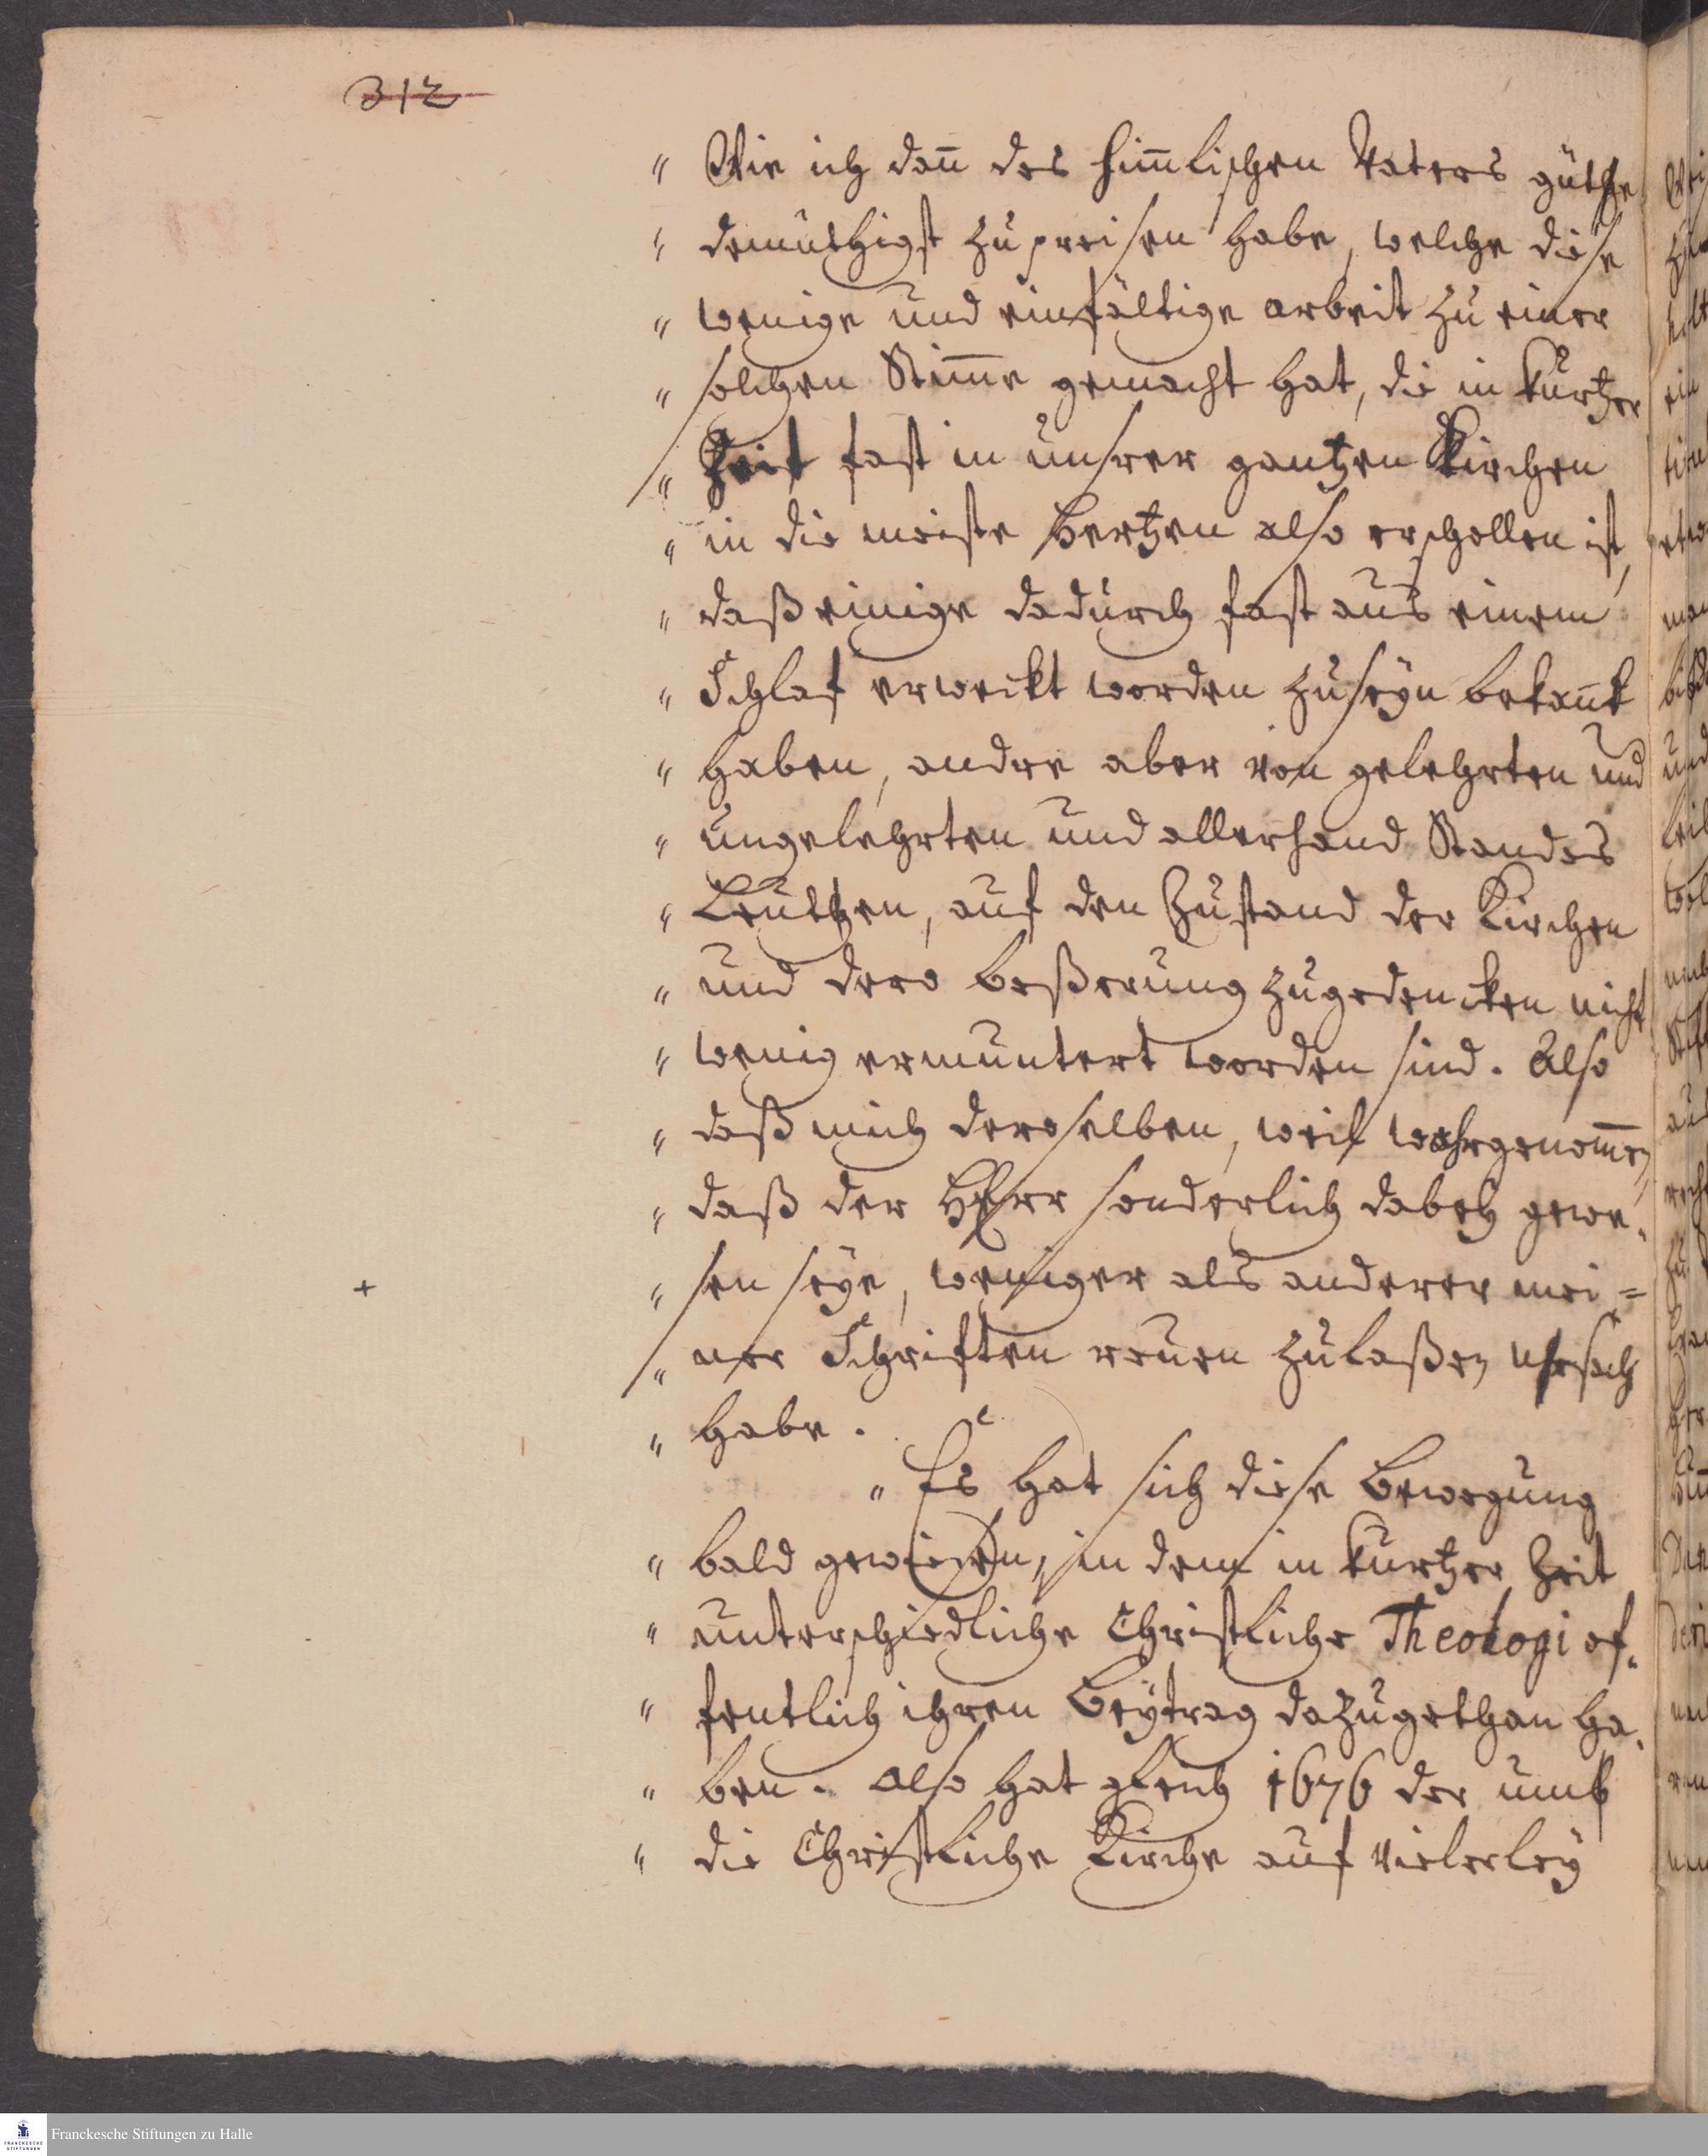 312
" Wie ich dan̄ des him̄lischen Vaters güthe
" demüthigst zu preisen habe, welche diese
" wenige und einfältige arbeit zu einer
" solchen Stim̄e gemacht hat, die in kurtzer
" Zeit fast in unsrer gantzen Kirchen
" in die meiste Hertzen also erschollen ist,
" daß einige dadurch fast aus einem
" Schlaf erweckt worden zu seyn bekan̄t
" haben, andre aber von gelehrten und
" ungelehrten und allerhand Standes
" Leuthen, auf den Zustand der Kirchen
" und dero beßerung zugedencken nicht
" wenig ermuntert worden sind. Also
" daß mich deroselben, weil wahrgenom̄en,
" daß der HErr sonderlich dabey gewe-
+ " sen seye, weniger als anderer mei=
" ner Schriften reuen zulaßen Ursach
" habe.
" Es hat sich diese Bewegung
" bald gewiesen, in dem in kurtzer Zeit
" unterschiedliche Christliche Theologi of-
" fentlich ihren Beytrag dazugethan ha-
" ben. Also hat gleich 1676 der umb
" die Christliche Kirche auf vielerley
Franckesche Stiftungen zu Halle